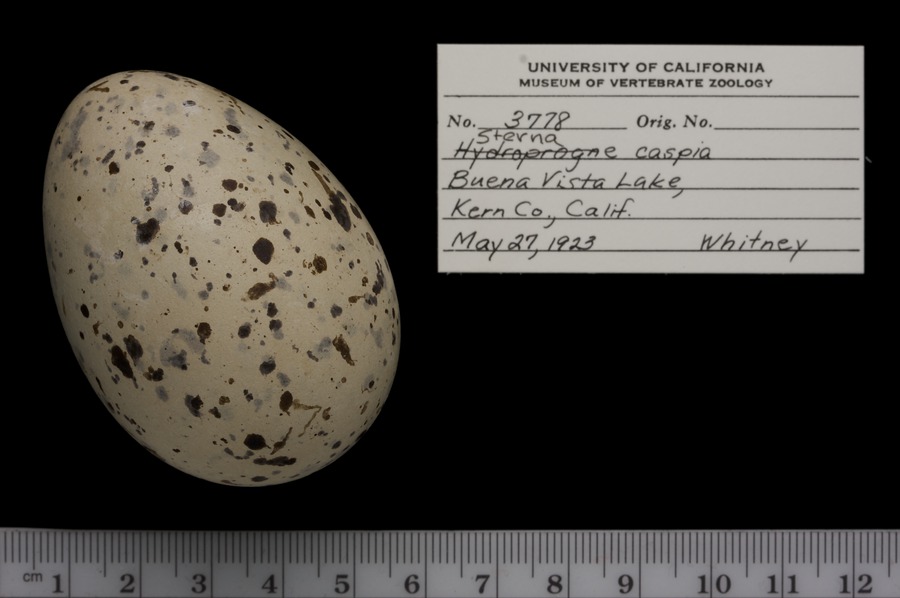 UNIVERSITY OF CALIFORNIA
MUSEUM OF VERTEBRATE ZOOLOGY
No. 3778 Orig. No.
Sterna
Hydroprogne caspia
Buena Vista Lake,
Kern Co., Calif.
May 27, 1923 Whitney
cm 1 2 3 4 5 6 7 8 9 10 11 12